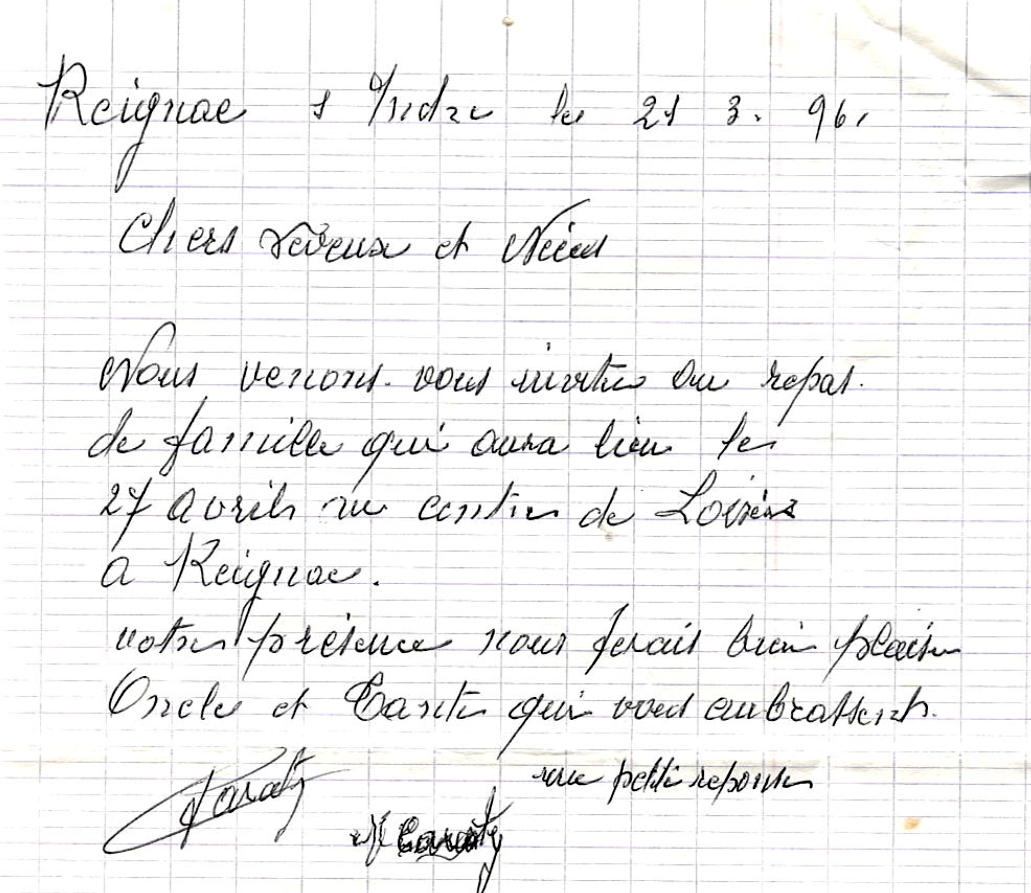 Reignac s/Indre le 21 3. 96.
Chers Neveux et Nièces
Nous venons vous inviter au repas
de famille qui aura lieu le
27 avril au centre de Loisirs
a Reignac.
votre présence nous ferais bien plaisir
Oncle et Tante qui vous embrassent.
une petite reponse